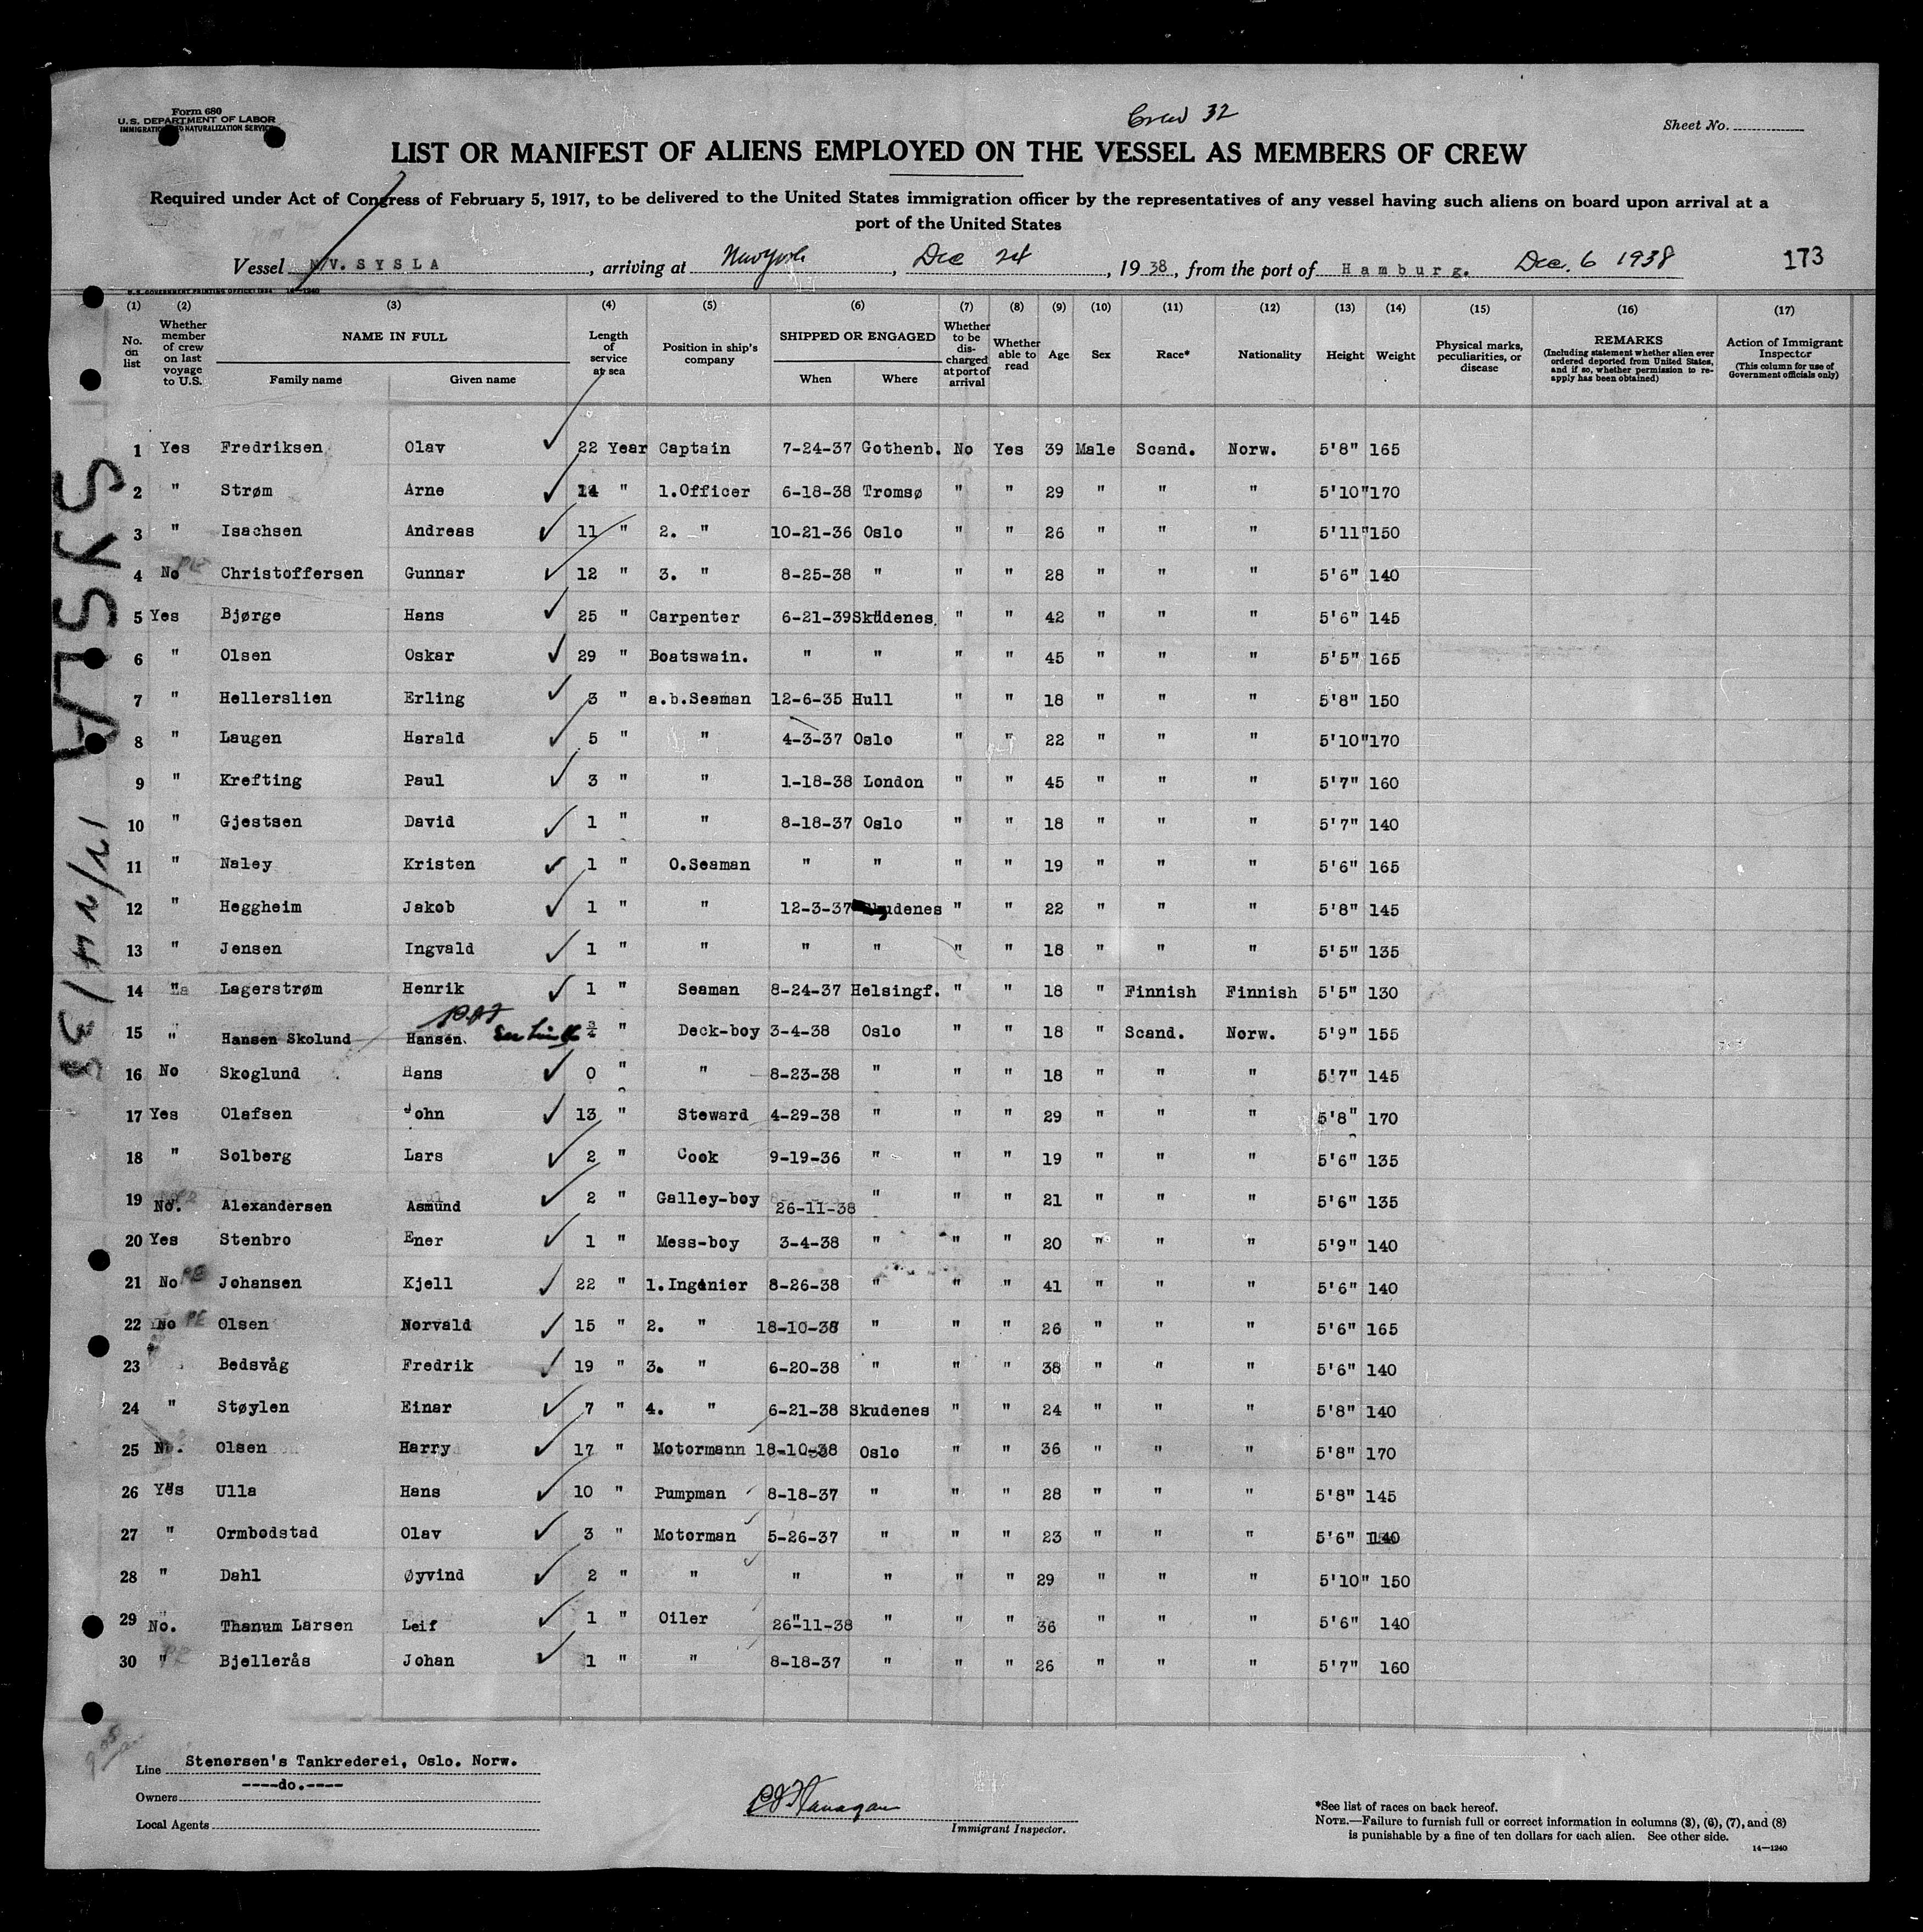 Form 680
U.S. DEPARTMENT OF LABOR
IMMIGRATION AND NATURALIZATION SERVICE
Crew 32
Sheet No.
LIST OR MANIFEST OF ALIENS EMPLOYED ON THE VESSEL AS MEMBERS OF CREW
Required under Act of Congress of February 5, 1917, to be delivered to the United States immigration officer by the representatives of any vessel having such aliens on board upon arrival at a
port of the United States
Vessel M/V. SYSLA, arriving at New York, Dec 24, 1938, from the port of Hamburg. Dec. 6 1938 173
(1) (2) (3) (4) (5) (6) (7) (8) (9) (10) (11) (12) (13) (14) (15) (16) (17)
No. on list
Whether member of crew on last voyage to U.S.
NAME IN FULL
Family name Given name
Length of service at sea
Position in ship's company
SHIPPED OR ENGAGED
When Where
Whether to be discharged at port of arrival
Whether able to read
Age Sex Race* Nationality Height Weight
Physical marks, peculiarities, or disease
REMARKS
(Including statement whether alien ever ordered deported from United States, and if so, whether permission to re-apply has been obtained)
Action of Immigrant Inspector
(This column for use of Government officials only)
1 Yes Fredriksen Olav 22 Year Captain 7-24-37 Gothenb. No Yes 39 Male Scand. Norw. 5'8" 165
2 " Strøm Arne 14 " 1.Officer 6-18-38 Tromsø " " 29 " " " 5'10" 170
3 " Isachsen Andreas 11 " 2. " 10-21-36 Oslo " " 26 " " " 5'11" 150
4 No Christoffersen Gunnar 12 " 3. " 8-25-38 " " " 28 " " " 5'6" 140
5 Yes Bjørge Hans 25 " Carpenter 6-21-39 Skudenes. " " 42 " " " 5'6" 145
6 " Olsen Oskar 29 " Boatswain. " " " " 45 " " " 5'5" 165
7 " Hellerslien Erling 3 " a.b.Seaman 12-6-35 Hull " " 18 " " " 5'8" 150
8 " Laugen Harald 5 " " 4-3-37 Oslo " " 22 " " " 5'10" 170
9 " Krefting Paul 3 " " 1-18-38 London " " 45 " " " 5'7" 160
10 " Gjestsen David 1 " " 8-18-37 Oslo " " 18 " " " 5'7" 140
11 " Naley Kristen 1 " O.Seaman " " " " 19 " " " 5'6" 165
12 " Heggheim Jakob 1 " " 12-3-37 Skudenes " " 22 " " " 5'8" 145
13 " Jensen Ingvald 1 " " " " " " 18 " " " 5'5" 135
14 " Lagerstrøm Henrik 1 " Seaman 8-24-37 Helsingf. " " 18 " Finnish Finnish 5'5" 130
15 " Hansen Skolund Hansen. ¾ " Deck-boy 3-4-38 Oslo " " 18 " Scand. Norw. 5'9" 155
16 No Skoglund Hans 0 " " 8-23-38 " " " 18 " " " 5'7" 145
17 Yes Olafsen John 13 " Steward 4-29-38 " " " 29 " " " 5'8" 170
18 " Solberg Lars 2 " Cook 9-19-36 " " " 19 " " " 5'6" 135
19 No. Alexandersen Asmund 2 " Galley-boy 26-11-38 " " " 21 " " " 5'6" 135
20 Yes Stenbro Ener 1 " Mess-boy 3-4-38 " " " 20 " " " 5'9" 140
21 No PE Johansen Kjell 22 " 1.Ingenier 8-26-38 " " " 41 " " " 5'6" 140
22 No PE Olsen Norvald 15 " 2. " 18-10-38 " " " 26 " " " 5'6" 165
23 Bedsvåg Fredrik 19 " 3. " 6-20-38 " " " 38 " " " 5'6" 140
24 " Støylen Einar 7 " 4. " 6-21-38 Skudenes " " 24 " " " 5'8" 140
25 No. Olsen Harry 17 " Motormann 18-10-38 Oslo " " 36 " " " 5'8" 170
26 Yes Ulla Hans 10 " Pumpman 8-18-37 " " " 28 " " " 5'8" 145
27 " Ormbodstad Olav 3 " Motorman 5-26-37 " " " 23 " " " 5'6" 140
28 " Dahl Øyvind 2 " " " " " " 29 " " " 5'10" 150
29 No. Thanum Larsen Leif 1 " Oiler 26-11-38 " " " 36 " " " 5'6" 140
30 " Bjellerås Johan 1 " " 8-18-37 " " " 26 " " " 5'7" 160
SYSLA
12/24/38
Line Stenersen's Tankrederei, Oslo. Norw.
Owners ----do.----
Local Agents
Immigrant Inspector.
*See list of races on back hereof.
NOTE.—Failure to furnish full or correct information in columns (3), (6), (7), and (8)
is punishable by a fine of ten dollars for each alien. See other side.
14—1240